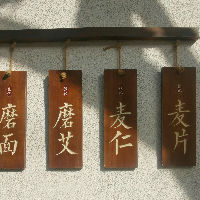 磨面
磨艾
麦仁
麦片